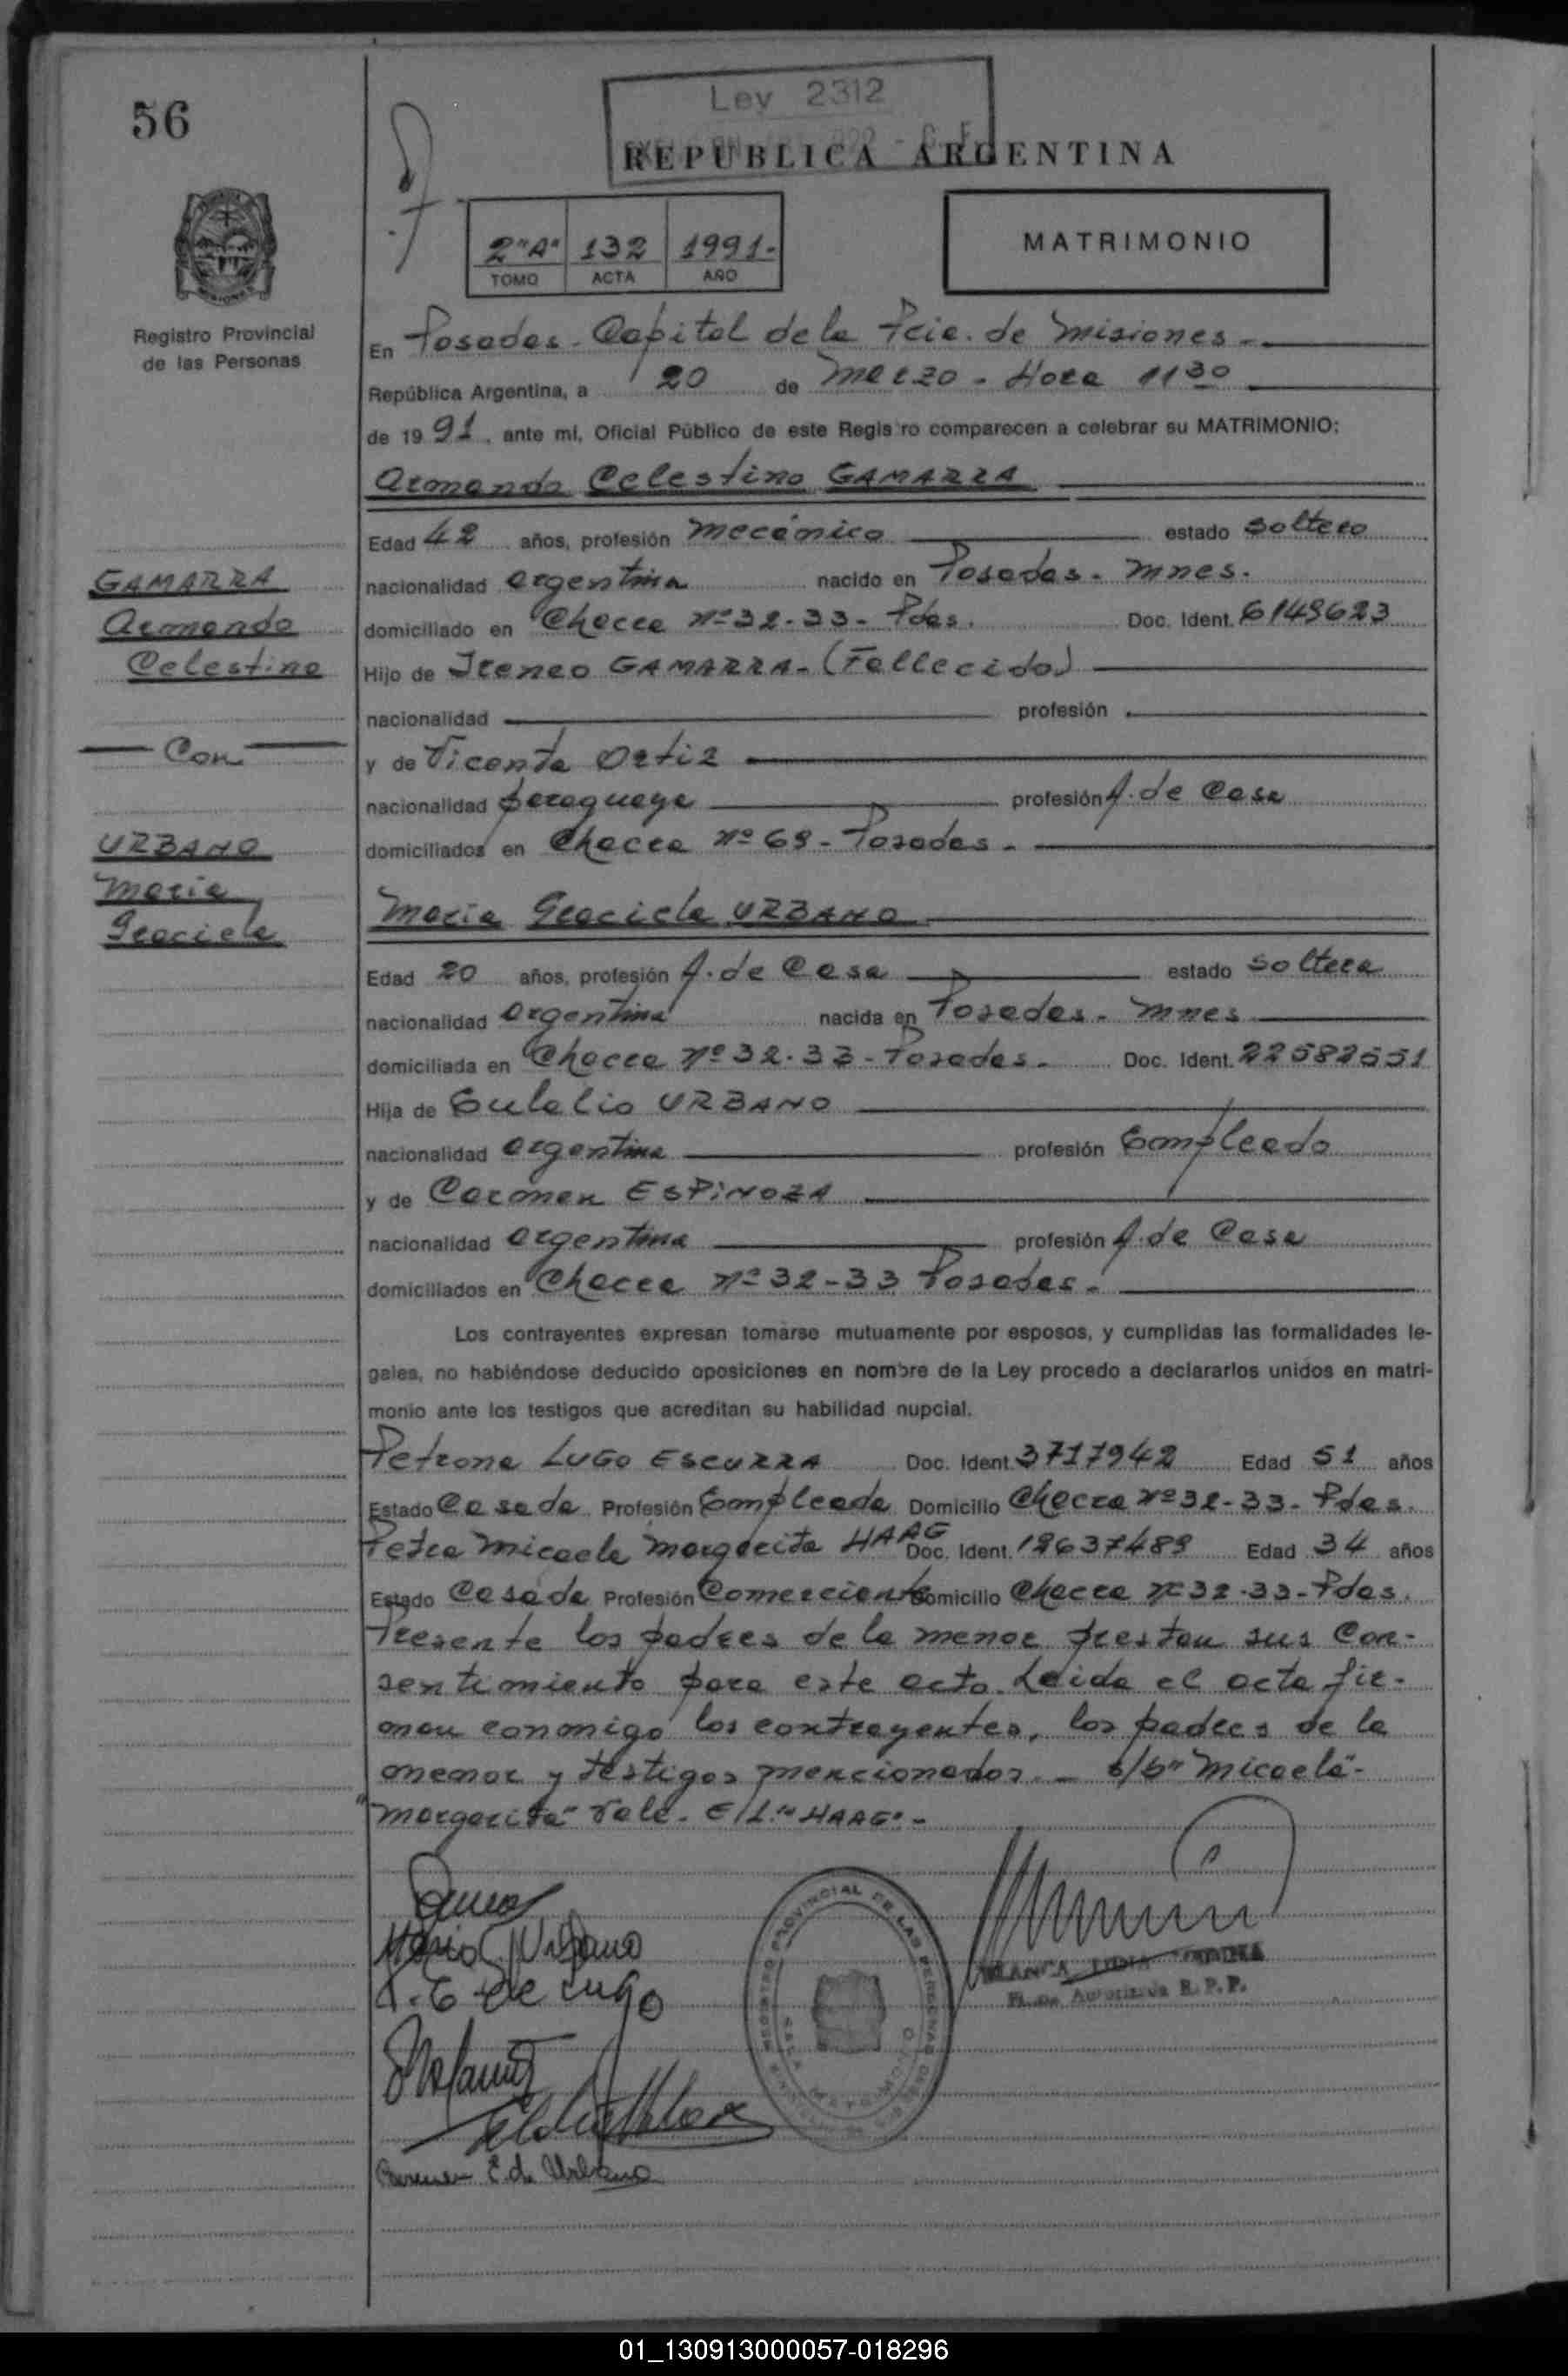 56
Ley 2312
REPUBLICA ARGENTINA
2"A" 132 1991-
TOMO ACTA AÑO
MATRIMONIO
Registro Provincial
de las Personas
En Posadas - Capital de la Pcia. de Misiones -
República Argentina, a 20 de Marzo - Hora 11 30
de 19 91, ante mi, Oficial Público de este Registro comparecen a celebrar su MATRIMONIO:
Armando Celestino GAMARRA
Edad 42 años, profesión Mecánico estado Soltero
GAMARRA
Armando
Celestino
Con
URBANO
Maria
Graciela
nacionalidad argentina nacido en Posadas - Mnes.
domiciliado en Chacra Nº 32-33 - Pdas. Doc. Ident. 6149623
Hijo de Ireneo GAMARRA - (Fallecido)
nacionalidad profesión
y de Vicenta Ortiz
nacionalidad paraguaya profesión A. de Casa
domiciliados en Chacra Nº 69 - Posadas -
Maria Graciela URBANO
Edad 20 años, profesión A. de Casa estado Soltera
nacionalidad argentina nacida en Posadas - Mnes
domiciliada en Chacra Nº 32-33 - Posadas - Doc. Ident. 22582551
Hija de Eulalio URBANO
nacionalidad argentina profesión Empleado
y de Carmen ESPINOZA
nacionalidad argentina profesión A. de Casa
domiciliados en Chacra Nº 32-33 Posadas -
Los contrayentes expresan tomarse mutuamente por esposos, y cumplidas las formalidades le-
gales, no habiéndose deducido oposiciones en nombre de la Ley procedo a declararlos unidos en matri-
monio ante los testigos que acreditan su habilidad nupcial.
Petrona LUGO ESCURRA Doc. Ident. 3717942 Edad 51 años
Estado Casada Profesión Empleada Domicilio Chacra Nº 32-33 - Pdas.
Petra Micaela Margarita HAAG Doc. Ident. 12637489 Edad 34 años
Estado Casada Profesión Comerciante Domicilio Chacra Nº 32-33 - Pdas.
Presente los padres de la menor prestan sus con-
sentimiento para este acto. Leida el acta fir-
man conmigo los contrayentes, los padres de la
menor y testigos mencionados. - s/b" Micaela"-
"Margarita" Vale - E/L "HAAG" -
Maria G Urbano
P. E de Lugo
Carmen E. de Urbano
REGISTRO PROVINCIAL DE LAS PERSONAS
BLANCA
Autorizada R. P. P.
01_130913000057-018296